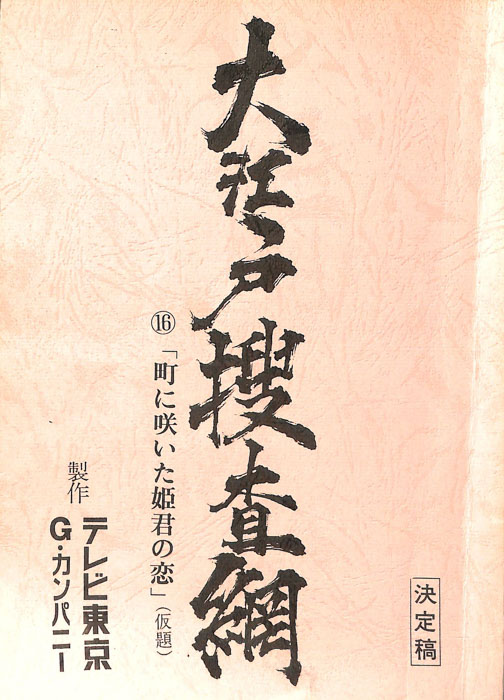 大江戸捜査網
⑯「町に咲いた姫君の恋」(仮題)
製作
テレビ東京
G・カンパニー
決定稿